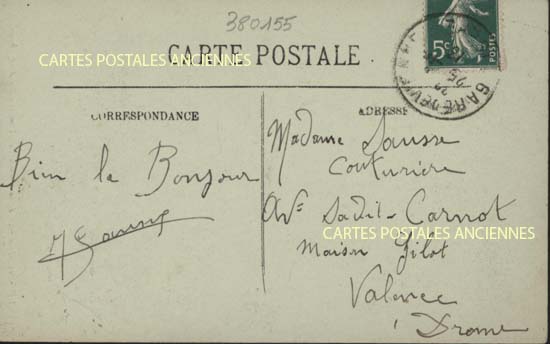 380155
CARTES POSTALES ANCIENNES
CARTE POSTALE
CORRESPONDANCE
ADRESSE
5c
POSTES
GARE
Bien le Bonjour
Madame Sausse
Couturière
Ave Sadi-Carnot
CARTES POSTALES ANCIENNES
Maison Gilot
Valence
Drome